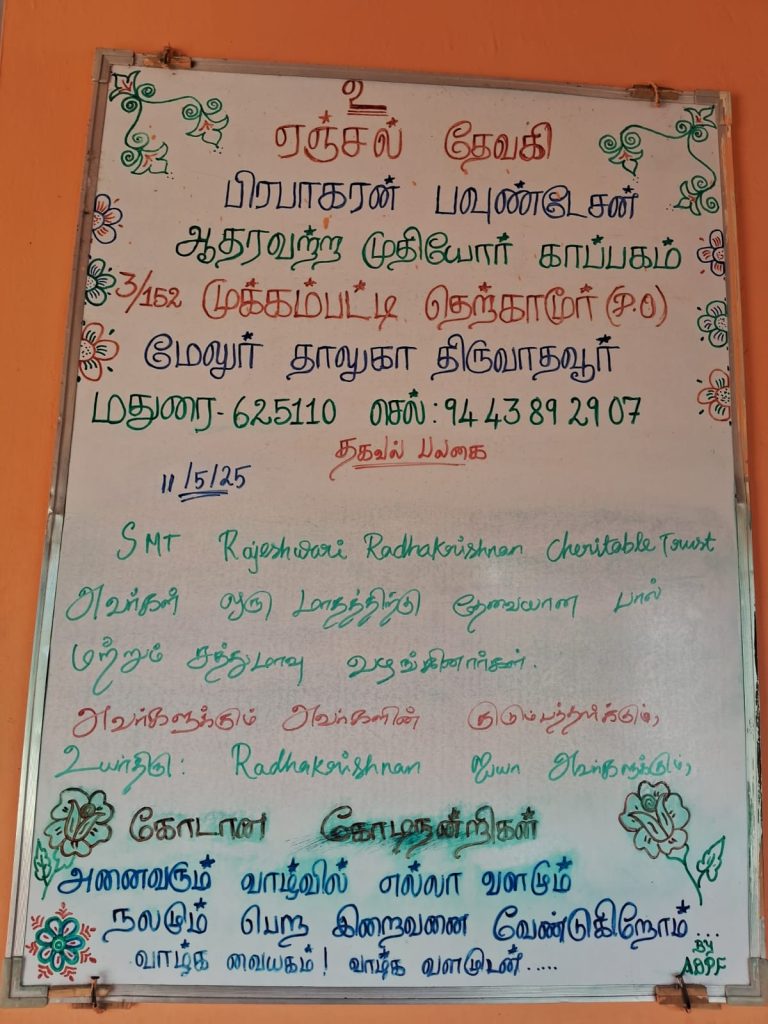 உ
ஏஞ்சல் தேவகி
பிரபாகரன் பவுண்டேசன்
ஆதரவற்ற முதியோர் காப்பகம்
3/152 முக்கம்பட்டி தெற்காமூர் (P.O)
மேலூர் தாலுகா திருவாதவூர்
மதுரை- 625110 செல்: 94 43 89 29 07
தகவல் பலகை
11/5/25
SMT Rajeshwari Radhakrishnan Cheritable Trust
அவர்கள் ஒரு மாதத்திற்கு தேவையான பால்
மற்றும் சத்துமாவு வழங்கினார்கள்.
அவர்களுக்கும் அவர்களின் குடும்பத்தாரிக்கும்,
உயர்திடு: Radhakrishnan ஐயா அவர்களுக்கும்,
கோடான கோடிநன்றிகள்
அனைவரும் வாழ்வில் எல்லா வளமும்
நலமும் பெற இறைவனை வேண்டுகிறோம்...
வாழ்க வையகம்! வாழ்க வளமுடன்.....
BY
ADPF